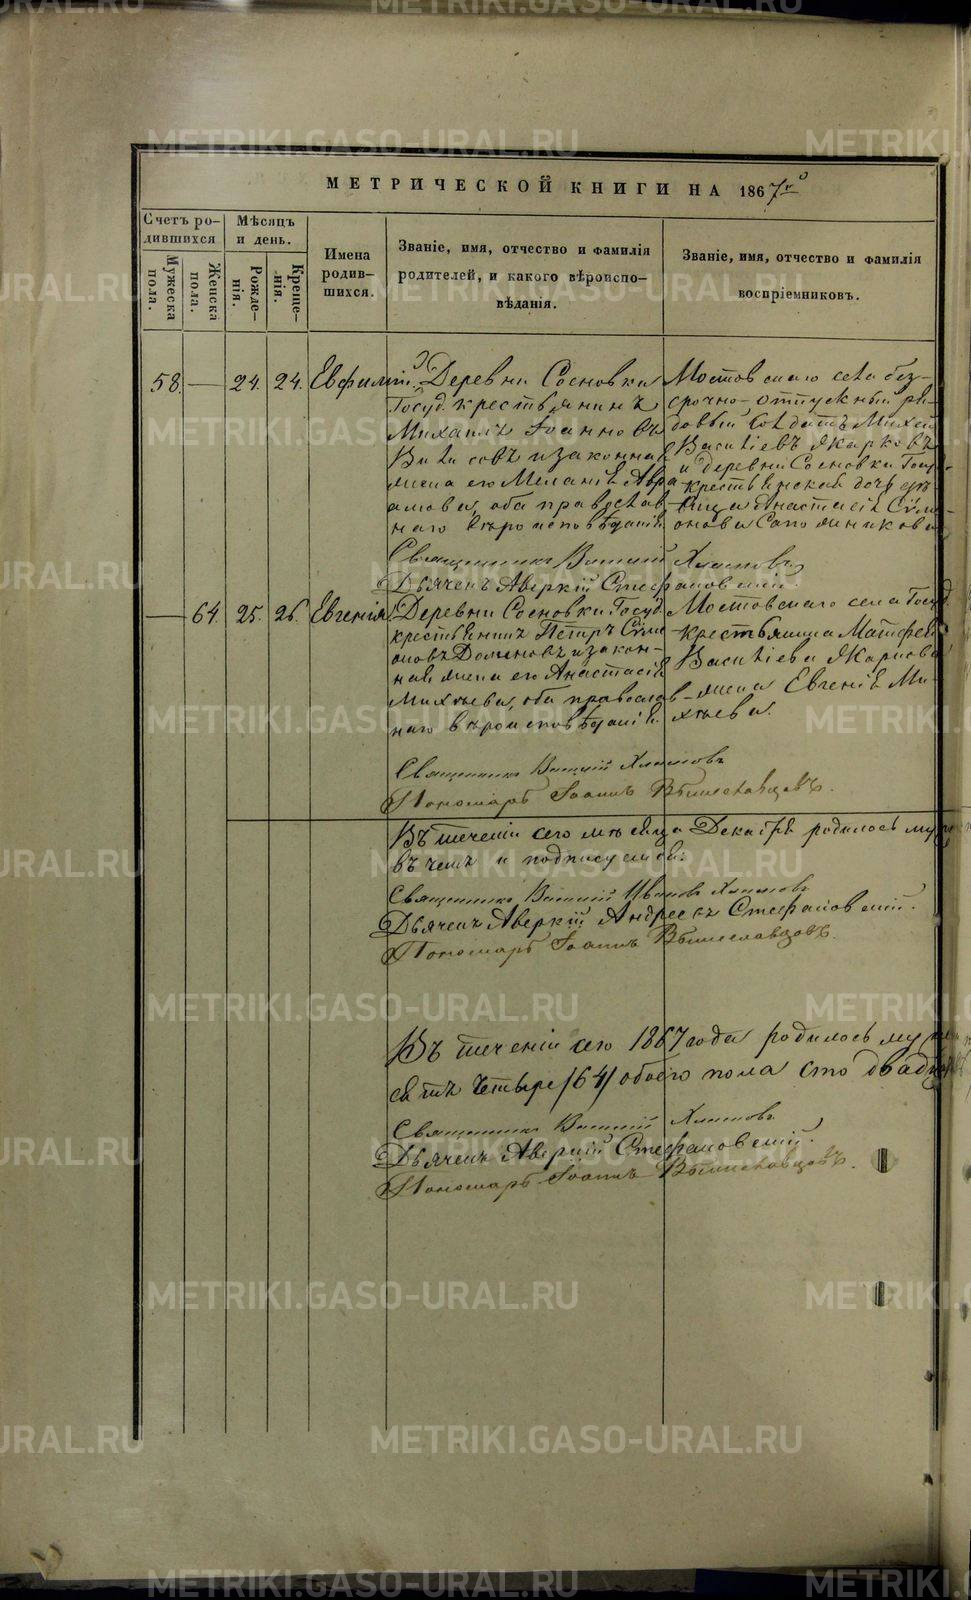 METRIKI.GASO-URAL.RU
МЕТРИЧЕСКОЙ КНИГИ НА 1867й
Счетъ ро-
дившихся
Мужеска
пола.
Женска
пола.
Мѣсяцъ
и день.
Рожде-
нія.
Креще-
нія.
Имена
родив-
шихся.
Званіе, имя, отчество и фамилія
родителей, и какого вѣроиспо-
вѣданія.
Званіе, имя, отчество и фамилія
воспріемниковъ.
58. — 24. 24. Евфимій.
Деревни Сосновки
Госуд. крестьянинъ
Михаилъ Іоанновъ
и законная
жена его Меланія Авра
амова, оба православ-
наго вѣроисповѣданія.
Мостовскаго села без-
срочно-отпускный ря-
довый солдатъ Михей
Васильевъ Жарковъ
и деревни Сосновки Госу.
крестьянская дочь дѣ-
вица Анастасія Симе-
онова Сапожникова
Священникъ Хламовъ
Дьячекъ Аверкій Стефановскій.
— 64. 25. 26. Евгенія.
Деревни Сосновки Госуд.
крестьянинъ Петръ Симе
оновъ и закон-
ная жена его Анастасія
Михѣева, оба православ-
наго вѣроисповѣданія.
Мостовскаго села Госуд.
крестьянина Матфея
Васильева Жаркова
жена Евгенія Ми-
хѣева.
Священникъ Хламовъ
Пономарь Іоаннъ Вышеславцовъ.
Въ теченіи сего мѣсяца Декабря родилось муж
въ чемъ и подписуемся:
Священникъ Ивановъ Хламовъ
Дьячекъ Аверкій Андреевъ Стефановскій.
Пономарь Іоаннъ Вышеславцовъ.
Въ теченіи сего 1867 года родилось муж
сятъ четыре /64/ обоего пола сто двадц
Священникъ Хламовъ
Дьячекъ Аверкій Стефановскій.
Пономарь Іоаннъ Вышеславцовъ.